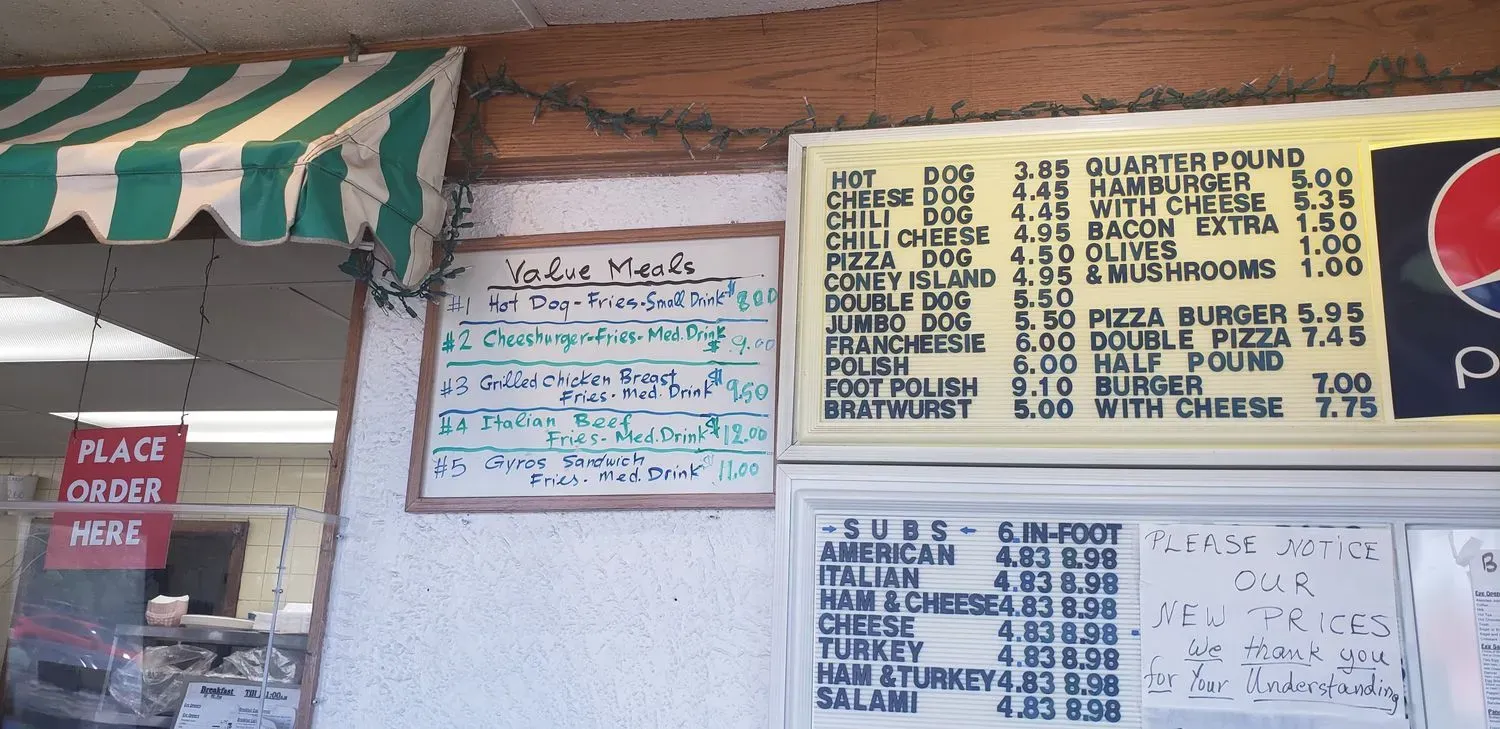 PLACE
ORDER
HERE
Breakfast
Value Meals
#1 Hot Dog-Fries-Small Drink $ 8.00
#2 Cheesburger-Fries-Med. Drink $ 9.00
#3 Grilled Chicken Breast
Fries-Med. Drink $ 9.50
#4 Italian Beef
Fries-Med. Drink $ 12.00
#5 Gyros Sandwich
Fries-Med. Drink $ 11.00
HOT DOG 3.85
CHEESE DOG 4.45
CHILI DOG 4.45
CHILI CHEESE 4.95
PIZZA DOG 4.50
CONEY ISLAND 4.95
DOUBLE DOG 5.50
JUMBO DOG 5.50
FRANCHEESIE 6.00
POLISH 6.00
FOOT POLISH 9.10
BRATWURST 5.00
QUARTER POUND
HAMBURGER 5.00
WITH CHEESE 5.35
BACON EXTRA 1.50
OLIVES 1.00
& MUSHROOMS 1.00
PIZZA BURGER 5.95
DOUBLE PIZZA 7.45
HALF POUND
BURGER 7.00
WITH CHEESE 7.75
→ SUBS ← 6 IN-FOOT
AMERICAN 4.83 8.98
ITALIAN 4.83 8.98
HAM & CHEESE 4.83 8.98
CHEESE 4.83 8.98
TURKEY 4.83 8.98
HAM & TURKEY 4.83 8.98
SALAMI 4.83 8.98
PLEASE NOTICE
OUR
NEW PRICES
We thank you
for Your Understanding